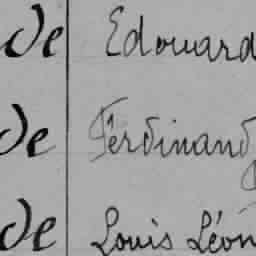 de Edouard
de Ferdinand
de Louis Léon